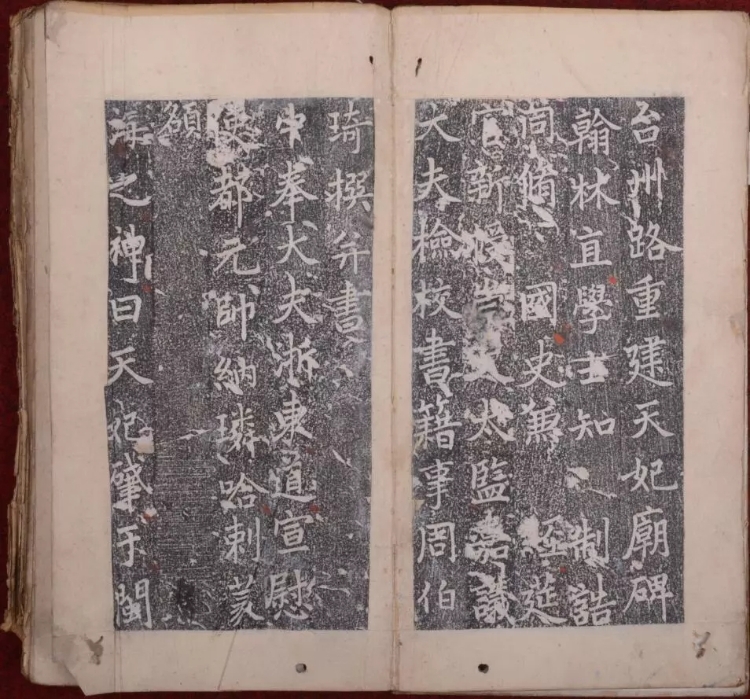 台州路重建天妃廟碑
翰林直學士知制誥
同脩國史兼經筵
官新大監
大夫檢校書籍事周伯
琦撰并書
中奉大夫浙東道宣慰
使都元帥納璘哈剌篆
額
海之神曰天妃肇于閩